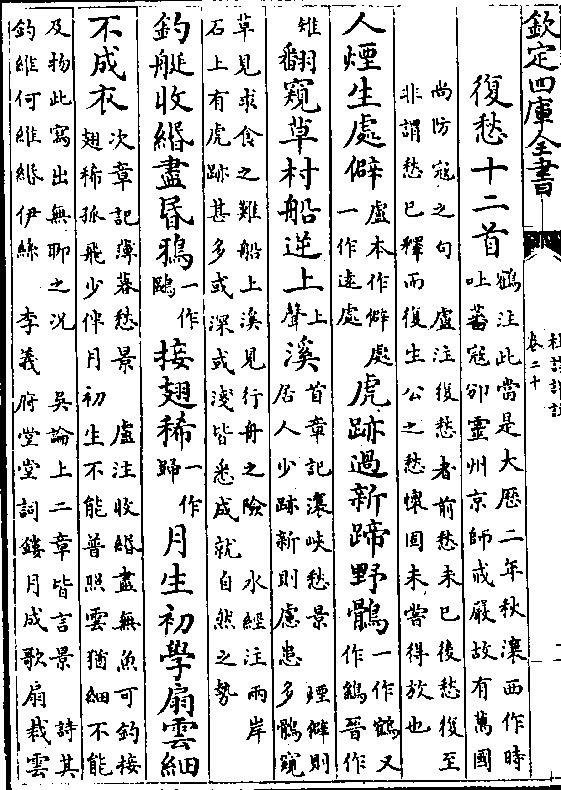 欽定四庫全書
杜詩詳註
卷二十
復愁十二首鶴注此當是大歷二年秋瀼西作時
吐蕃寇邠靈州京師戒嚴故有萬國
尚防寇之句 盧注復愁者前愁未已後愁復至
非謂愁已釋而復生公之愁懷固未嘗得放也
人煙生處僻盧本作僻處
一作遠處虎跡過新蹄野鶻一作鶴又
作鷂晉作
雉翻窺草村船逆上上聲溪首章記瀼峽愁景 煙僻則
居人少跡新則慮患多鶻窺
草見求食之難船上溪見行舟之險 水經注兩岸
石上有虎跡甚多或深或淺皆悉成就自然之勢
釣艇收緡盡昏鴉一作
鷗接翅稀一作
歸月生初學扇雲細
不成衣次章記薄暮愁景 盧注收緡盡無魚可釣接
翅稀孤飛少伴月初生不能普照雲猶細不能
及物此寫出無聊之況 吳論上二章皆言景 詩其
釣維何維緡伊絲 李義府堂堂詞鏤月成歌扇裁雲